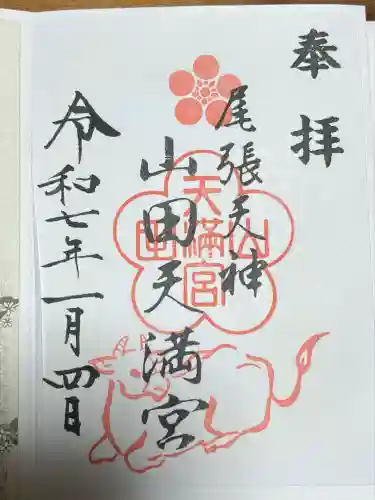 奉拝
尾張天神
山田天満宮
山田天満宮
令和七年一月四日